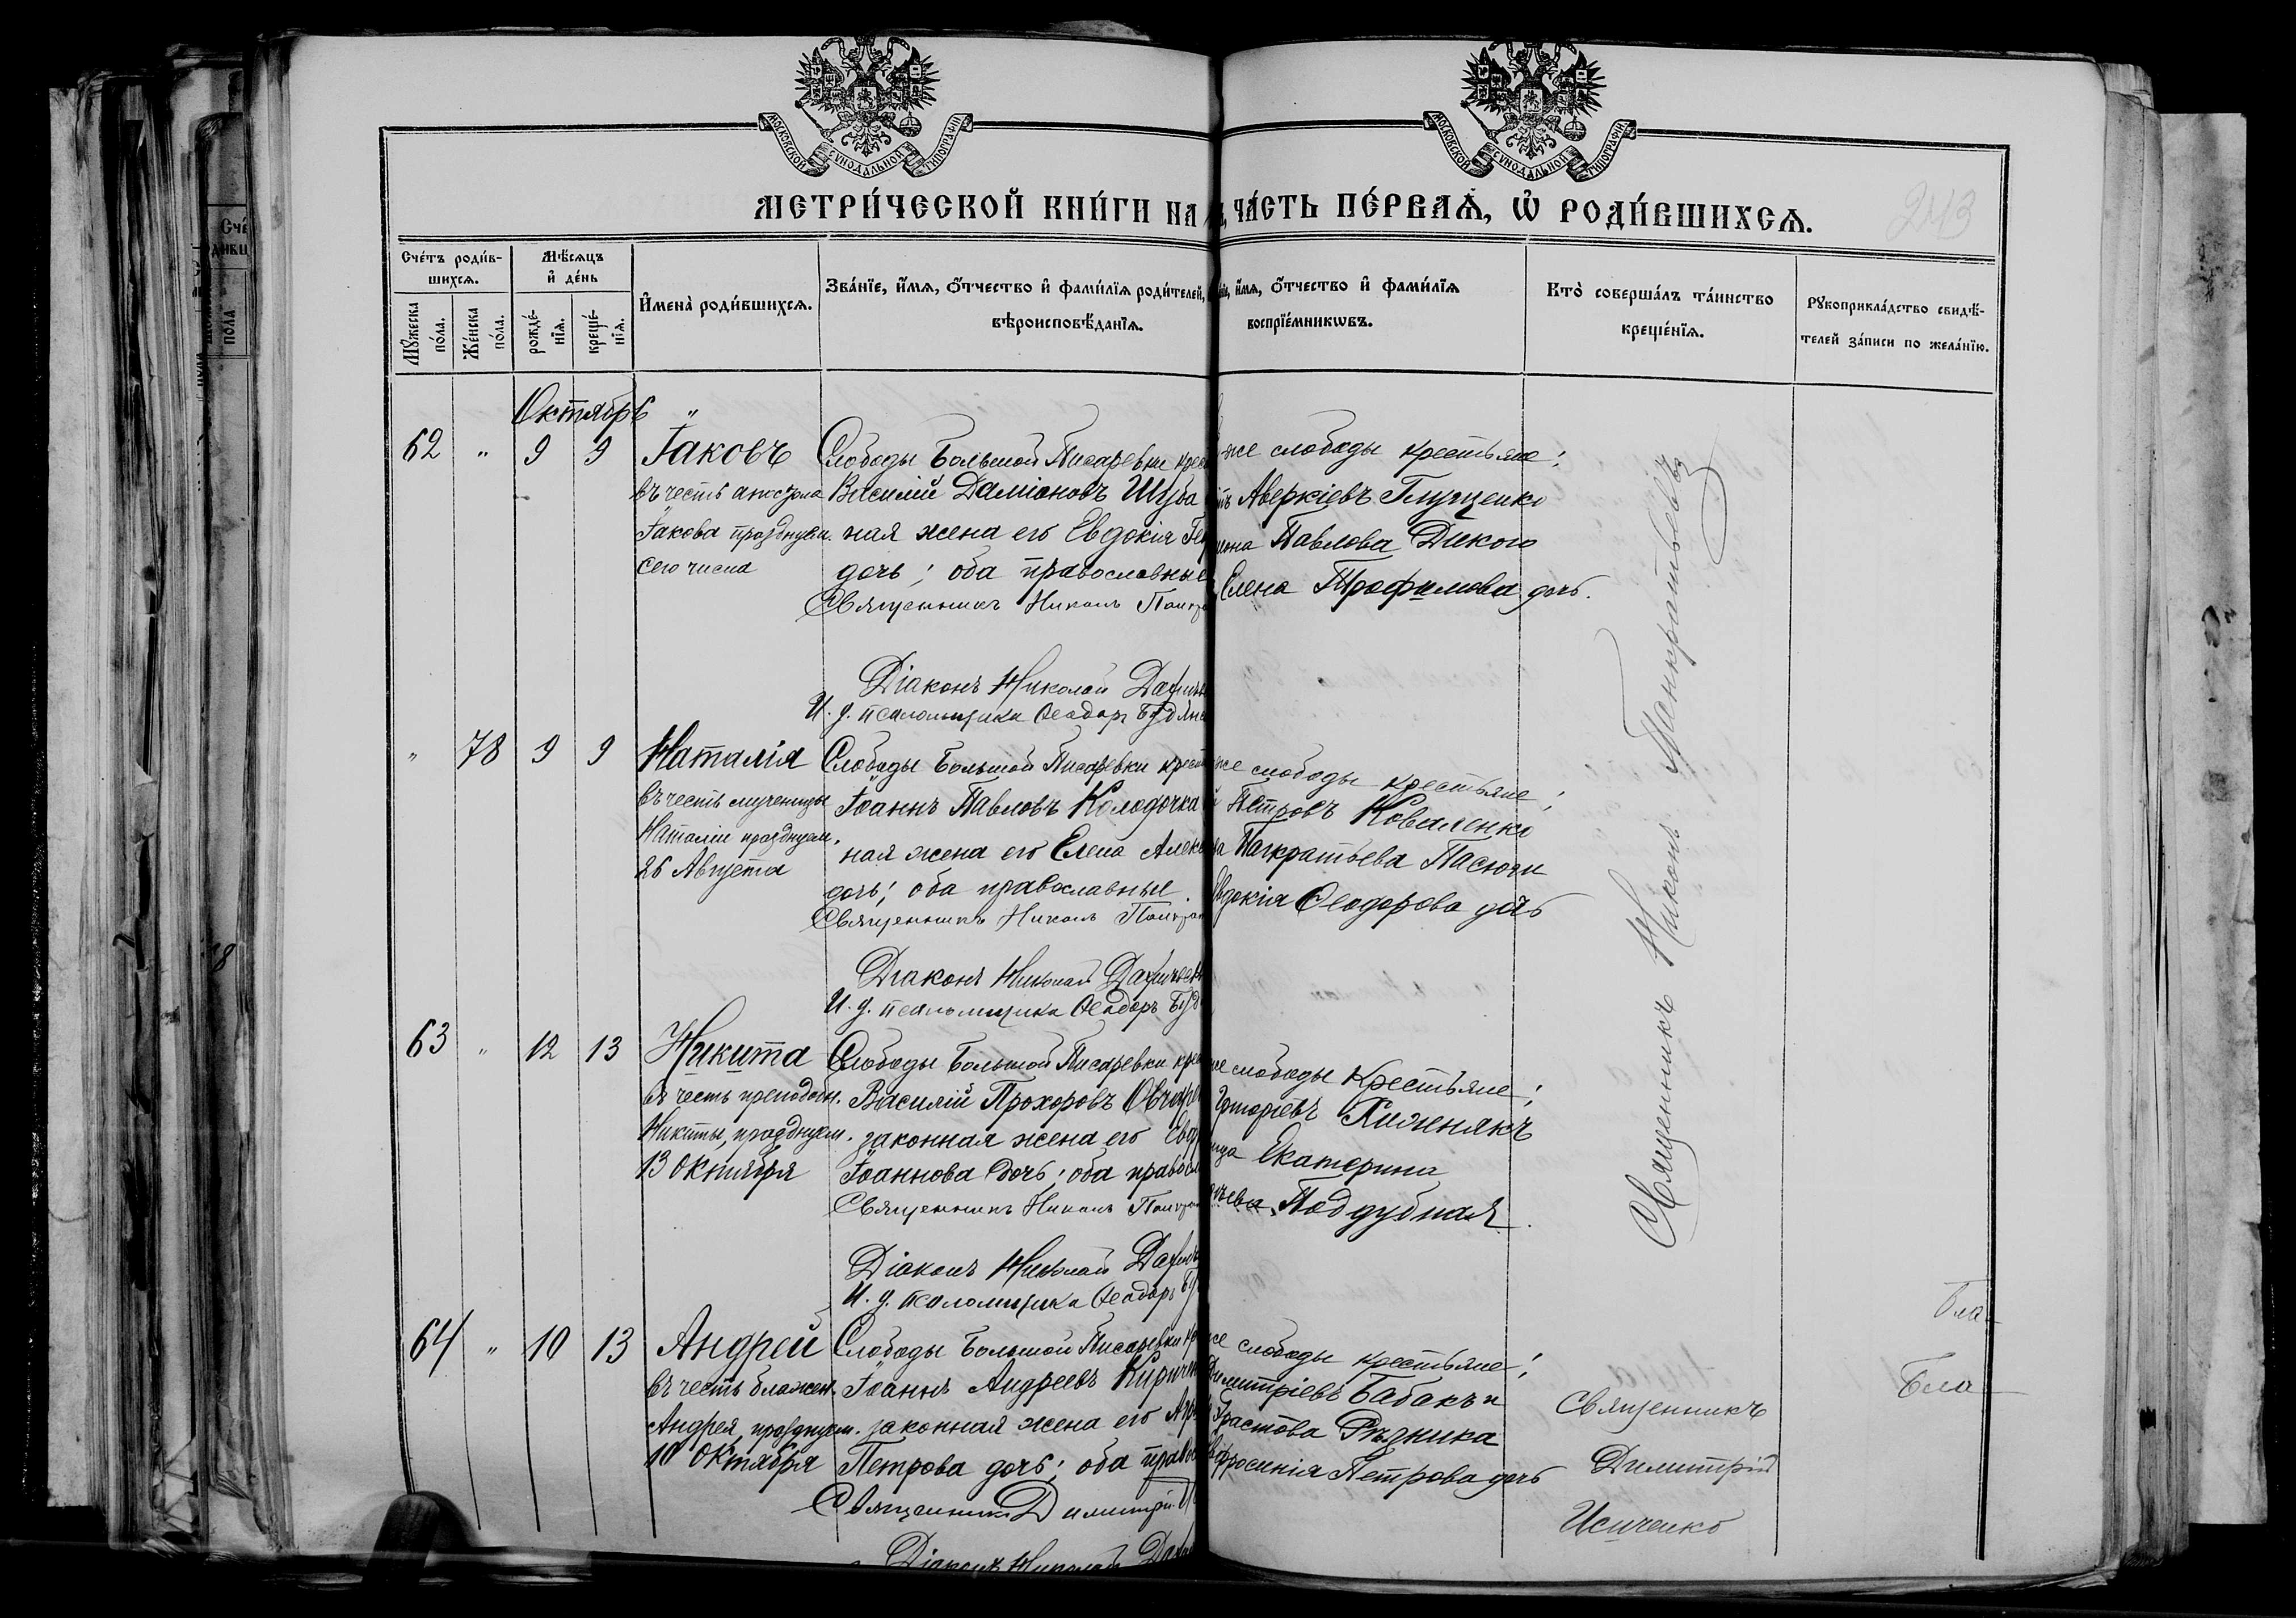 МОСКОВСКОЙ СѴНОДАЛЬНОЙ ТИПОГРАФІИ
МОСКОВСКОЙ СѴНОДАЛЬНОЙ ТИПОГРАФІИ
МЕТРИ́ЧЕСКОЙ КНИ́ГИ НА
ЧА́СТЬ ПЕ́РВАѦ, Ѡ҆ РОДИ́ВШИХСѦ.
243
Сче́тъ роди́в-
шихсѧ.
Мꙋ́жеска по́ла.
Же́нска по́ла.
Мѣ́сѧцъ и҆ де́нь
рожде́-нїѧ.
креще́-нїѧ.
И҆мена̀ роди́вшихсѧ.
Зва́нїе, и҆́мѧ, ѻ҆́тчество и҆ фами́лїѧ роди́телей,
вѣроисповѣ́данїѧ.
и҆́мѧ, ѻ҆́тчество и҆ фами́лїѧ
воспрїе́мникѡвъ.
Кто̀ соверша́лъ та́инство
креще́нїѧ.
Рꙋкоприкла́дство свидѣ́-
телей за́писи по жела́нїю.
Октябрь
62 " 9 9 Іаковъ
въ честь апостола
Іакова празднуем.
сего числа
Слободы Большой Писаревки
Василій Даміановъ Шуба
ная жена его Евдокія
дочь; оба православные
Священникъ Никонъ
Діаконъ Николай
И. д. псаломщика Ѳеодоръ
же слободы крестьяне;
Аверкіевъ Глущенко
Павлова Дикого
Елена Трофимова дочь.
" 78 9 9 Наталія
въ честь мученицы
Наталіи празднуем.
26 Августа
Слободы Большой Писаревки
Іоаннъ Павловъ Колодочка
ная жена его Елена
дочь; оба православные
Священникъ Никонъ
Діаконъ Николай
И. д. псаломщика Ѳеодоръ
же слободы крестьяне;
Петровъ Коваленко
Панкратьева Пасюги
Евдокія Ѳеодорова дочь
63 " 12 13 Никита
въ честь преподобн.
Никиты, празднуем.
13 Октября
Слободы Большой Писаревки
Василій Прохоровъ
законная жена его
Іоаннова дочь; оба
Священникъ Никонъ
Діаконъ Николай
И. д. псаломщика Ѳеодоръ
слободы крестьяне;
Григоріевъ
Екатерина
Поддубная
64 " 10 13 Андрей
въ честь блажен.
Андрея, празднуем.
10 Октября
Слободы Большой Писаревки
Іоаннъ Андреевъ
законная жена его
Петрова дочь; оба
Священникъ Димитрій
Діаконъ Николай
слободы крестьяне;
Димитріевъ Бабакъ и
Ѳрастова Рѣзника
Евфросинія Петрова дочь
Священникъ Никонъ Панкратьевъ
Священникъ
Димитрій
Исиченко
Бла
Бла